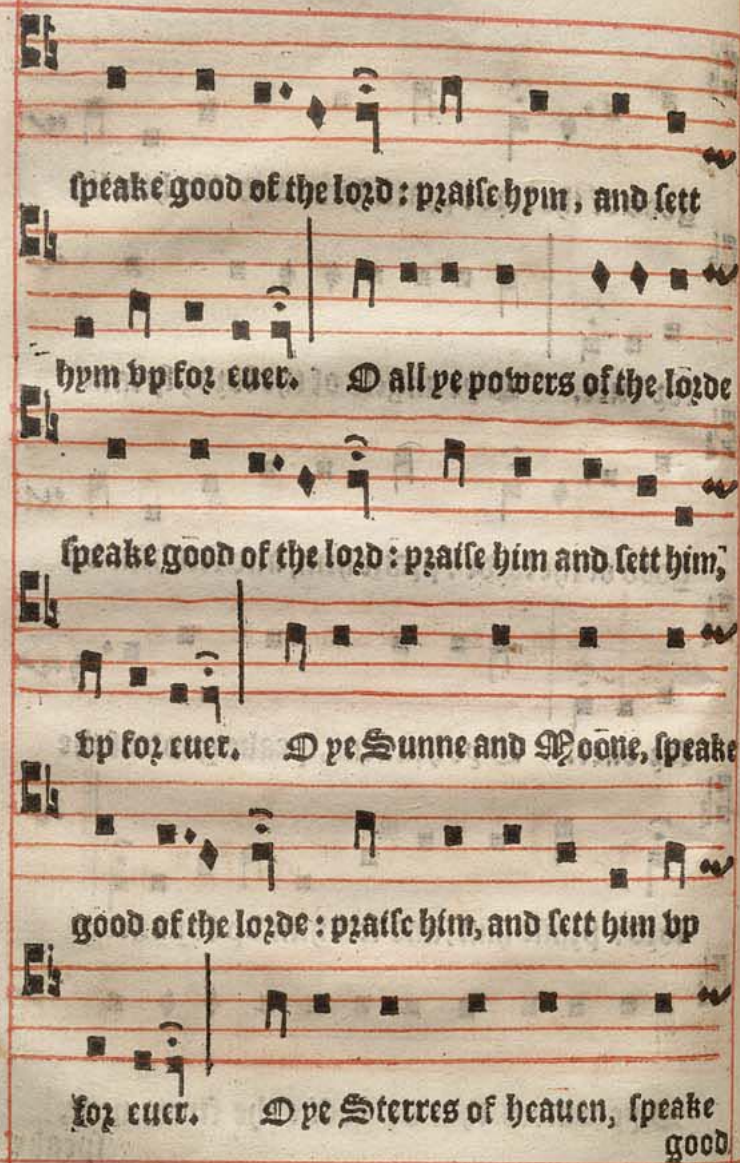 speake good of the lord : praise hym, and sett
hym vp for euer. O all ye powers of the lorde
speake good of the lord : praise him and sett him,
vp for euer. O ye Sunne and Moone, speake
good of the lorde : praise him, and sett him vp
for euer. O ye Sterres of heauen, speake
good